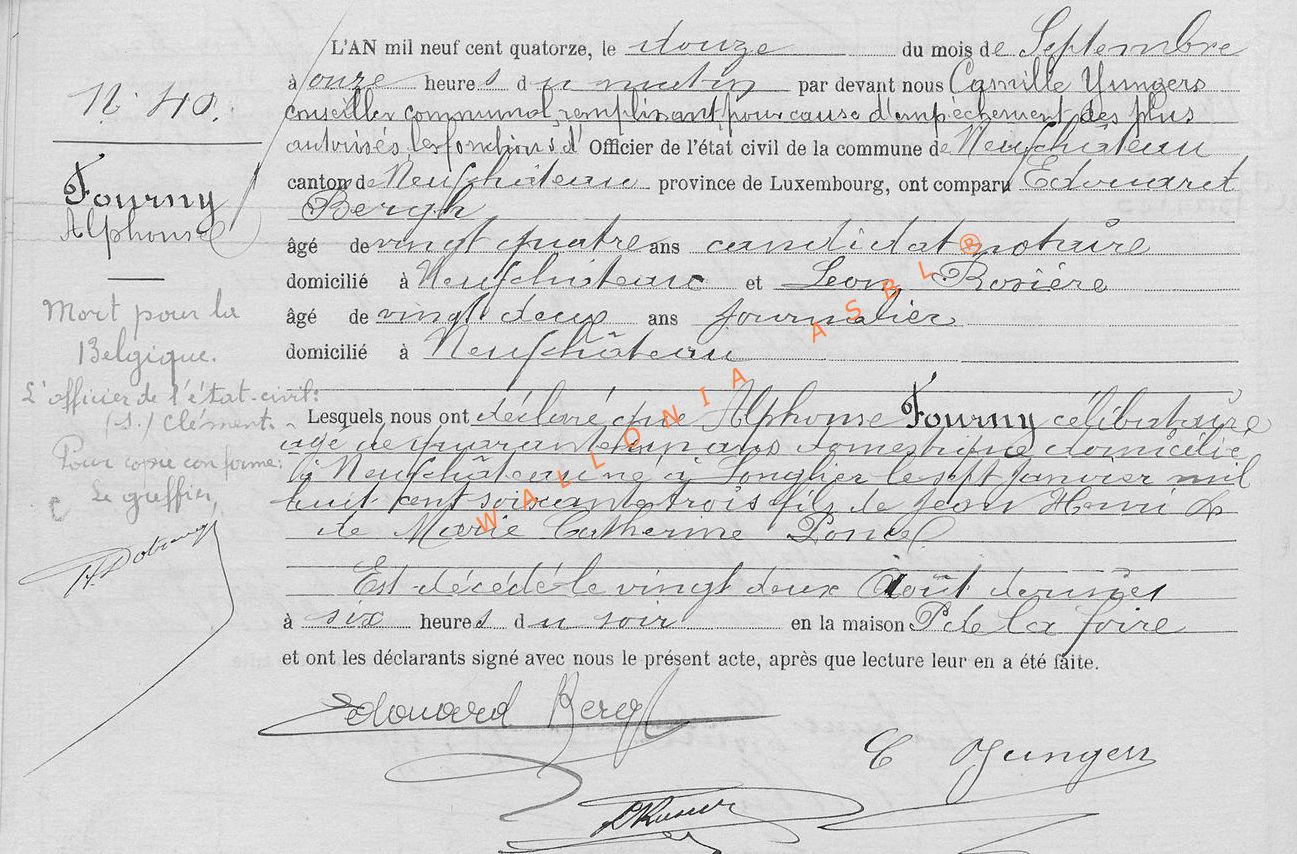 N° 40.
Fourny
Alphonse
Mort pour la
Belgique.
L'officier de l'état-civil:
(s.) Clément.
Pour copie conforme:
Le greffier,
L'AN mil neuf cent quatorze, le douze du mois de Septembre
à onze heures du matin par devant nous Camille Yungers
conseiller communal, remplissant pour cause d'empêchement des plus
autorisés, les fonctions d' Officier de l'état civil de la commune de Neufchâteau
canton de Neufchâteau province de Luxembourg, ont comparu Edouard
Bergh
âgé de vingt quatre ans candidat notaire
domicilié à Neufchâteau et Leon Rosière
âgé de vingt deux ans journalier
domicilié à Neufchâteau
Lesquels nous ont déclaré que Alphonse Fourny célibataire
agé de quarante un ans domestique domicilié
à Neufchâteau né à Longlier le sept janvier mil
huit cent soixante trois fils de Jean Henri &
de Marie Catherine Poncel
Est décédé le vingt deux Août dernier
à six heures du soir en la maison P. de la foire
et ont les déclarants signé avec nous le présent acte, après que lecture leur en a été faite.
Edouard Bergh
C Yungers
WALLONIA ASBL ®